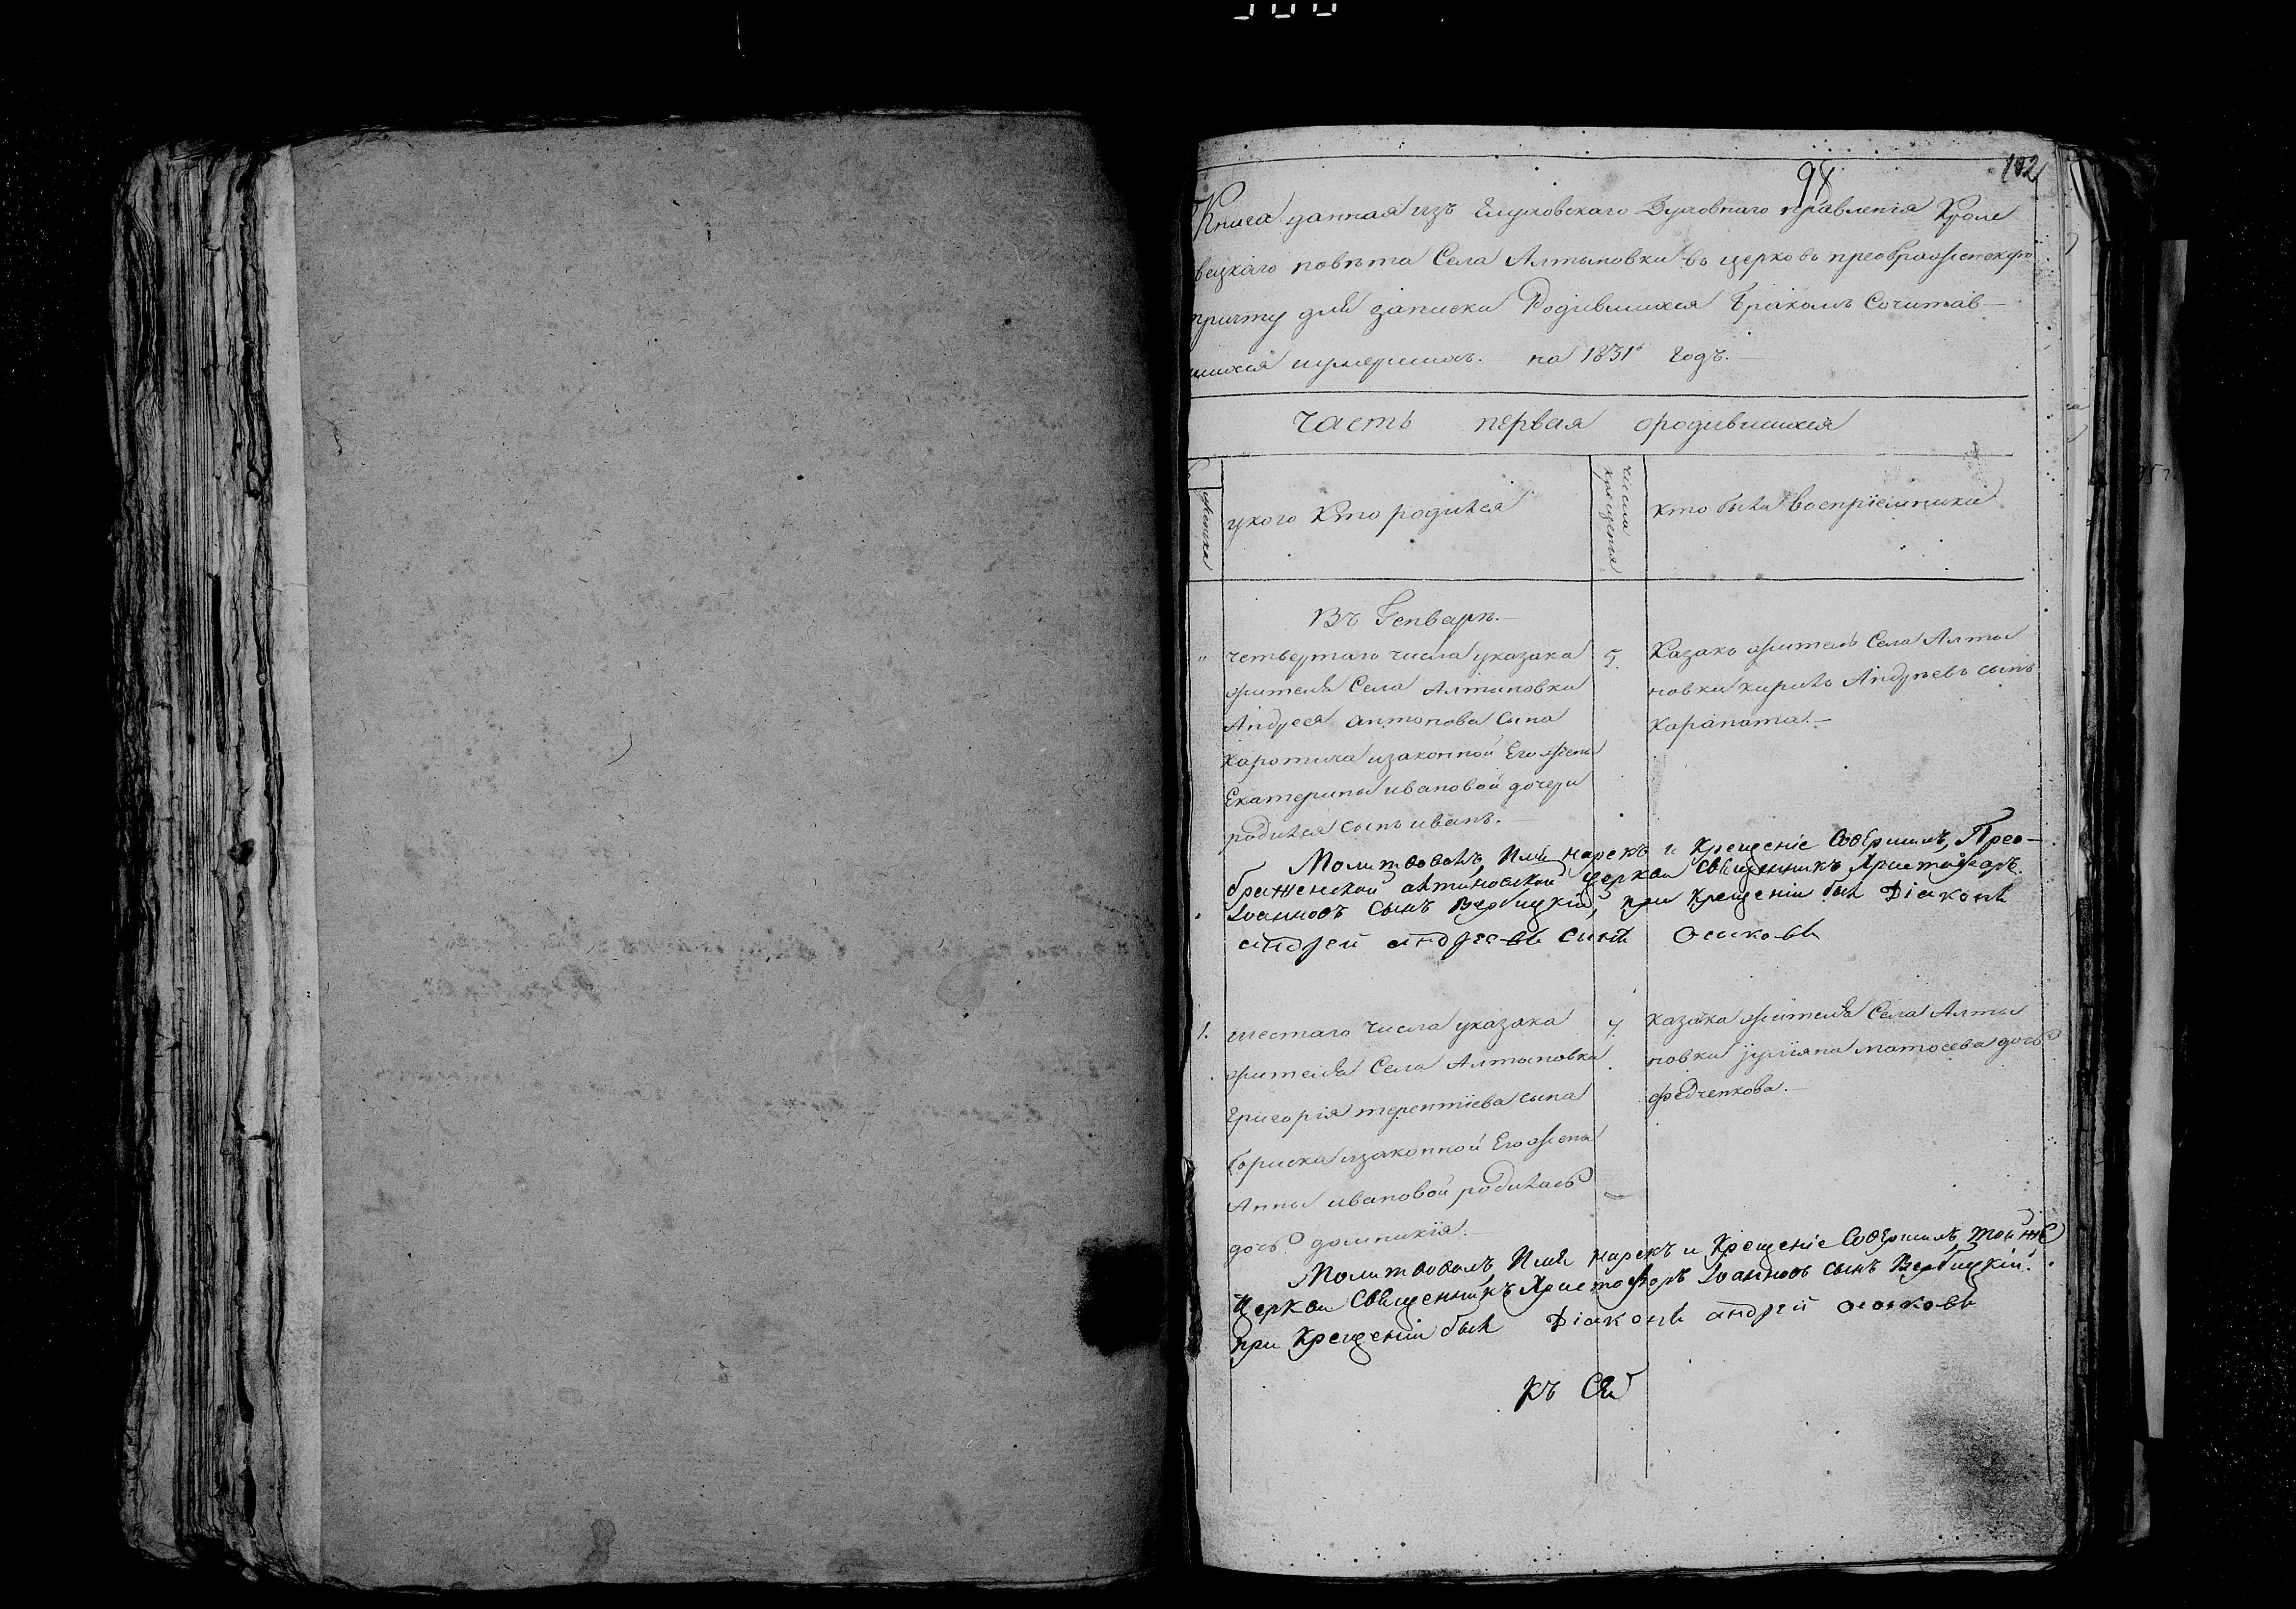 98
102
Книга данная изъ Глуховскаго Духовнаго правленія Кроле
вецкаго повѣта Села Алтыновки въ церковь
причту для записки Родившихся Бракомъ Сочитав-
шихся иумершихъ. на 1831й годъ.
Часть первая ородившихся
женска
укого Кто родился
числа крещенія
кто были воспріемники
Въ Генварѣ.
четвертаго числа указака
жителя Села Алтыновки
Андрея антонова сына
Каротича изаконной Его жены
Екатерины ивановой дочери
родился сынъ иванъ.
5.
Казакъ житель Села Алты
новки кирилъ Андреевъ сынъ
Карапата.
Молитвовалъ, Имя нарекъ и Крещеніе Совершилъ, Прео-
браженской алтиновской Церкви Священникъ Христофоръ
Іоанновъ Сынъ Вербицкій, при Крещеніи был Діаконъ
андрей андреевъ сынъ Осиковъ
1.
шестаго Числа указака
жителя Села Алтыновки
Григорія терентіева сына
бориска изаконной Его жены
Анны ивановой родилась
дочь домникія.
7.
казака жителя Села Алты
новки уліяна матвеева дочь
федченкова.
Молитвовалъ, Имя нарекъ и Крещеніе Совершилъ, той же
Церкви Священникъ Христофоръ Іоанновъ сынъ Вербицкій.
при Крещеніи был Діаконъ андрей осиковъ
Къ Сей